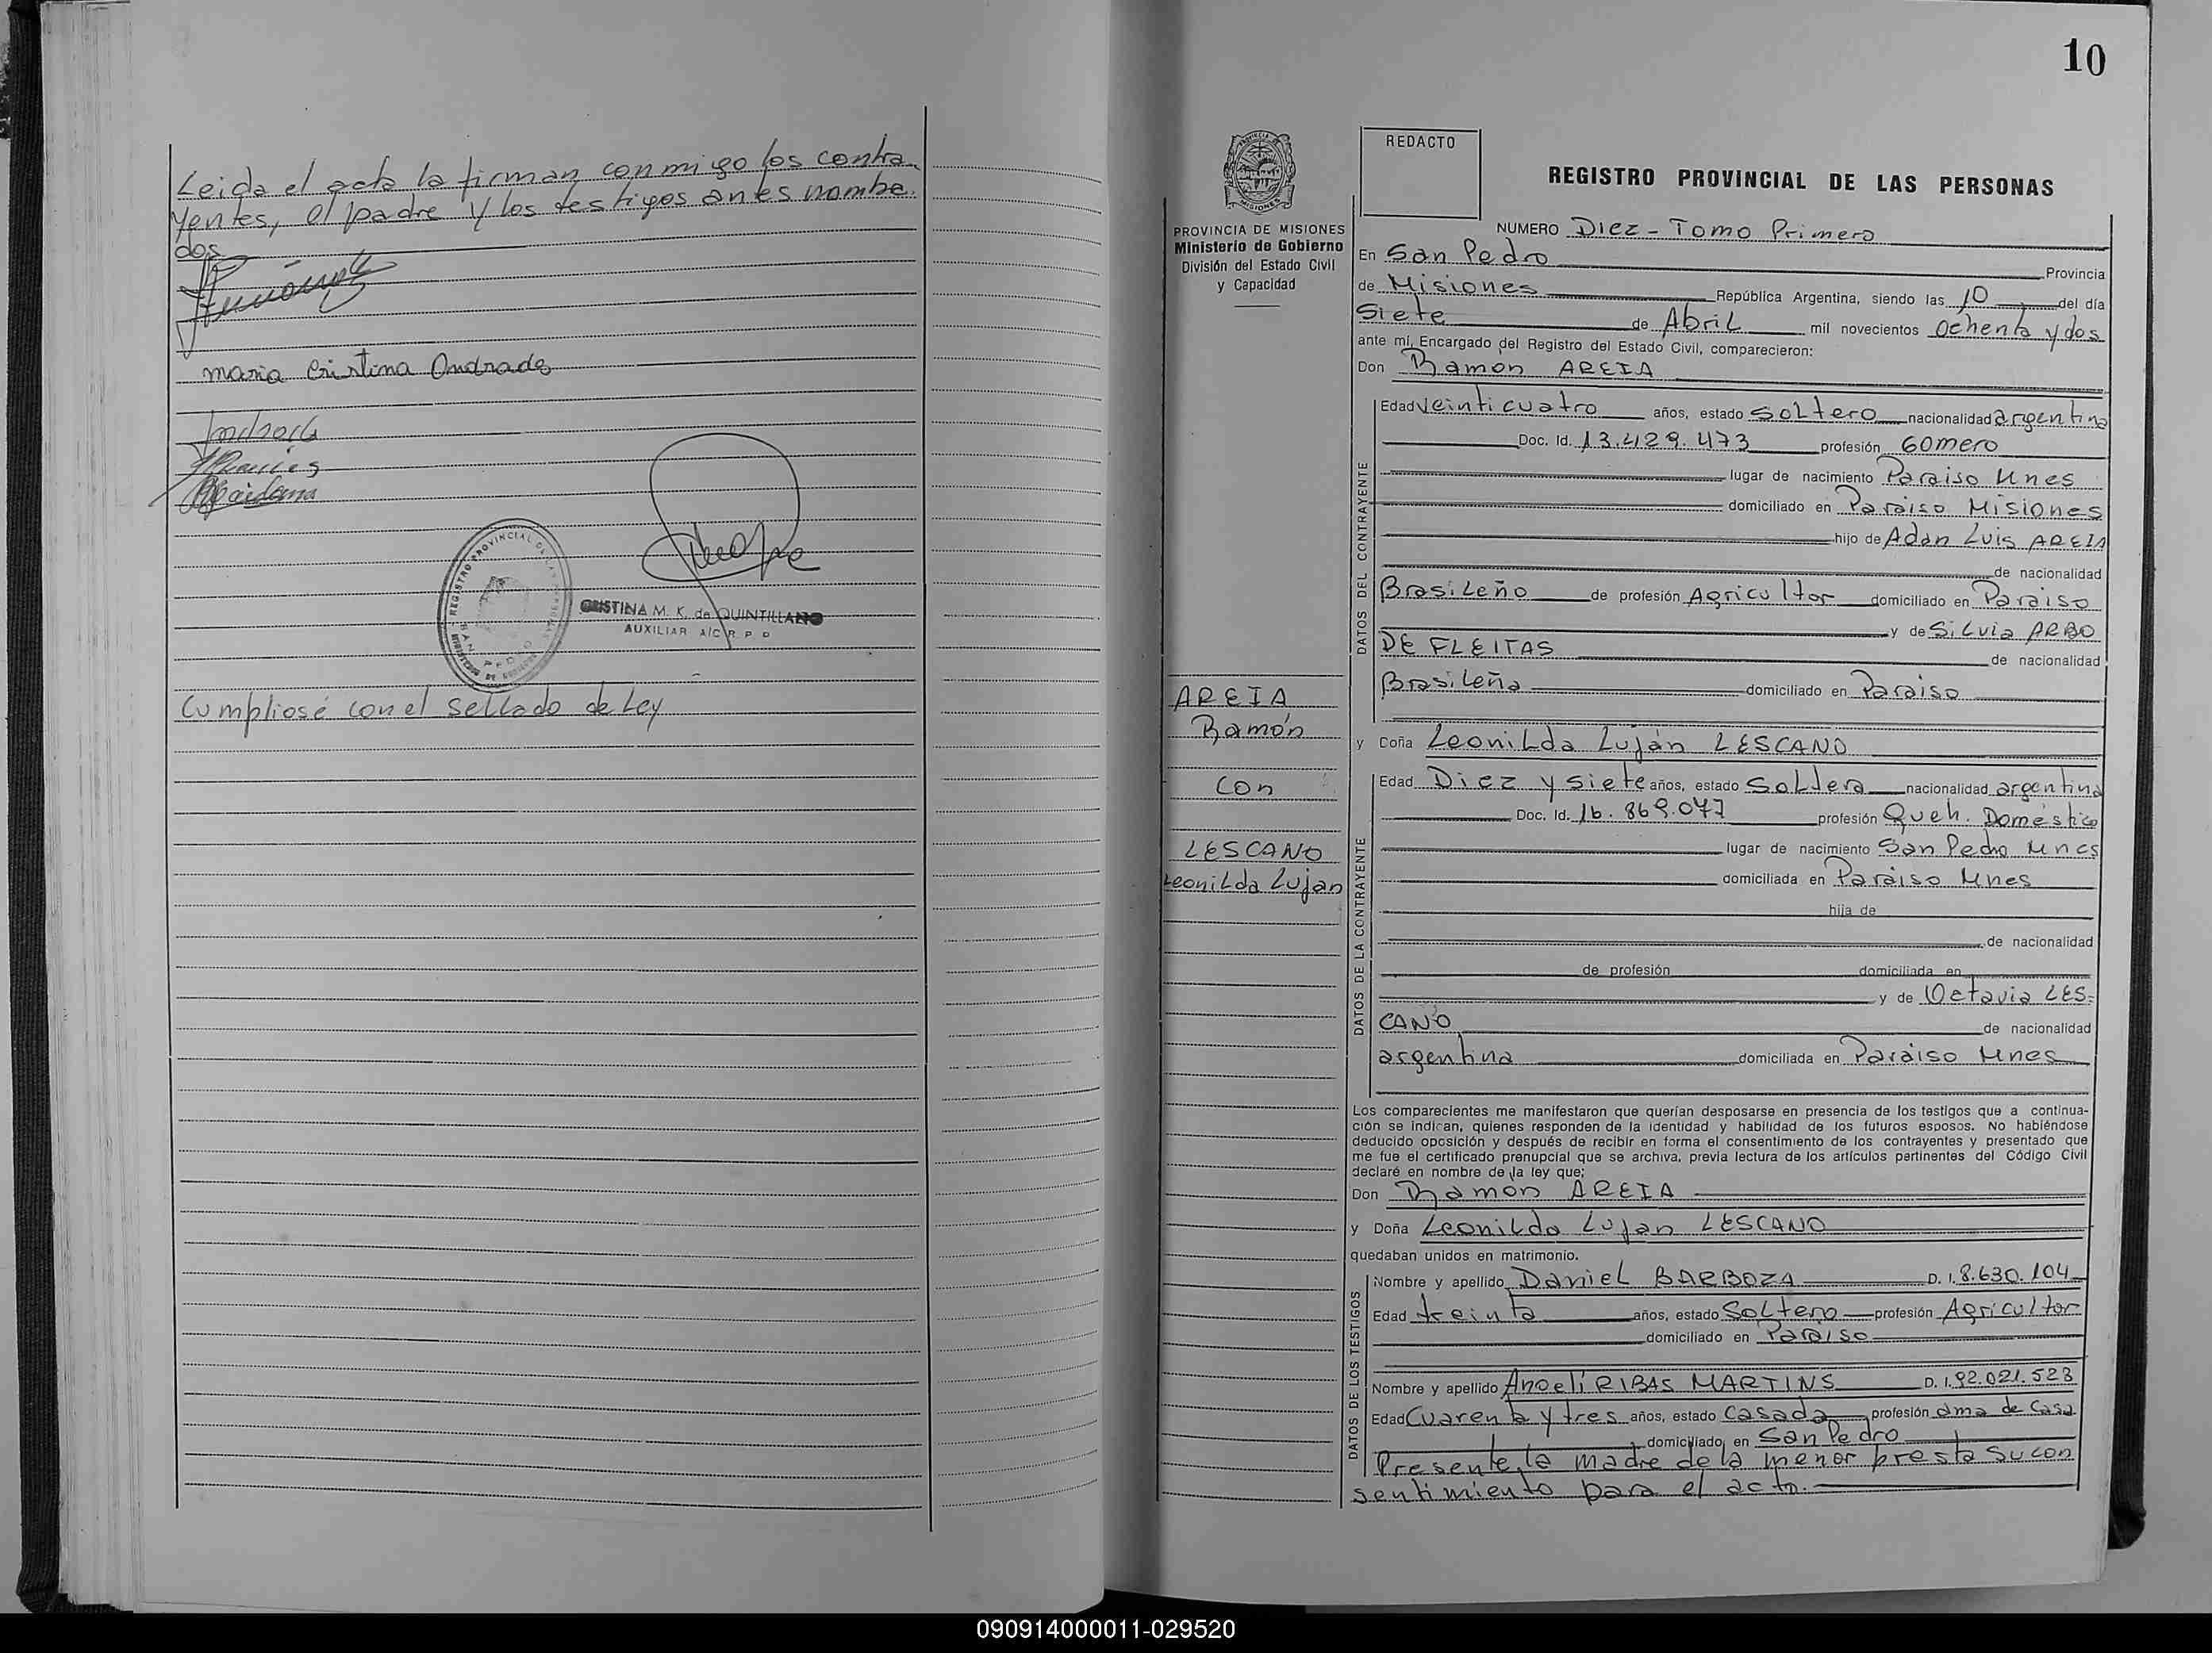 Leida el acta la firman conmigo los contra
yentes, el padre y los testigos antes nombra
dos
maria Cristina Andrade
REGISTRO PROVINCIAL DE LAS PERSONAS
SAN PEDRO
CRISTINA M. K. de QUINTILLANO
AUXILIAR A/C R P P
Cumpliose con el sellado de Ley
10
PROVINCIA DE MISIONES
Ministerio de Gobierno
División del Estado Civil
y Capacidad
AREIA
Ramón
con
LESCANO
Leonilda Lujan
REDACTO
REGISTRO PROVINCIAL DE LAS PERSONAS
NUMERO Diez - Tomo Primero
En San Pedro Provincia
de Misiones República Argentina, siendo las 10 del día
Siete de Abril mil novecientos ochenta y dos
ante mí, Encargado del Registro del Estado Civil, comparecieron:
Don Ramón AREIA
DATOS DEL CONTRAYENTE
Edad Veinticuatro años, estado Soltero nacionalidad argentina
Doc. Id. 13.429.473 profesión Gomero
lugar de nacimiento Paraiso Mnes
domiciliado en Paraiso Misiones
hijo de Adan Luis AREIA
de nacionalidad
Brasileño de profesión Agricultor domiciliado en Paraiso
y de Silvia ARBO
DE FLEITAS de nacionalidad
Brasileña domiciliado en Paraiso
y Doña Leonilda Luján LESCANO
DATOS DE LA CONTRAYENTE
Edad Diez y siete años, estado Soltera nacionalidad argentina
Doc. Id. 16.869.077 profesión Queh. Doméstico
lugar de nacimiento San Pedro Mnes
domiciliada en Paraiso Mnes
hija de
de nacionalidad
de profesión domiciliada en
y de Octavia LES-
CANO de nacionalidad
argentina domiciliada en Paraiso Mnes
Los comparecientes me manifestaron que querían desposarse en presencia de los testigos que a continua-
ción se indican, quienes responden de la identidad y habilidad de los futuros esposos. No habiéndose
deducido oposición y después de recibir en forma el consentimiento de los contrayentes y presentado que
me fue el certificado prenupcial que se archiva, previa lectura de los artículos pertinentes del Código Civil
declaré en nombre de la ley que:
Don Ramón AREIA
y Doña Leonilda Lujan LESCANO
quedaban unidos en matrimonio.
DATOS DE LOS TESTIGOS
Nombre y apellido Daniel BARBOZA D. I. 8.630.104
Edad treinta años, estado Soltero profesión Agricultor
domiciliado en Paraiso
Nombre y apellido Anoelí RIBAS MARTINS D. I. 92.021.523
Edad Cuarenta y tres años, estado Casada profesión ama de Casa
domiciliado en San Pedro
Presente la madre de la menor presta su con
sentimiento para el acto.
090914000011-029520